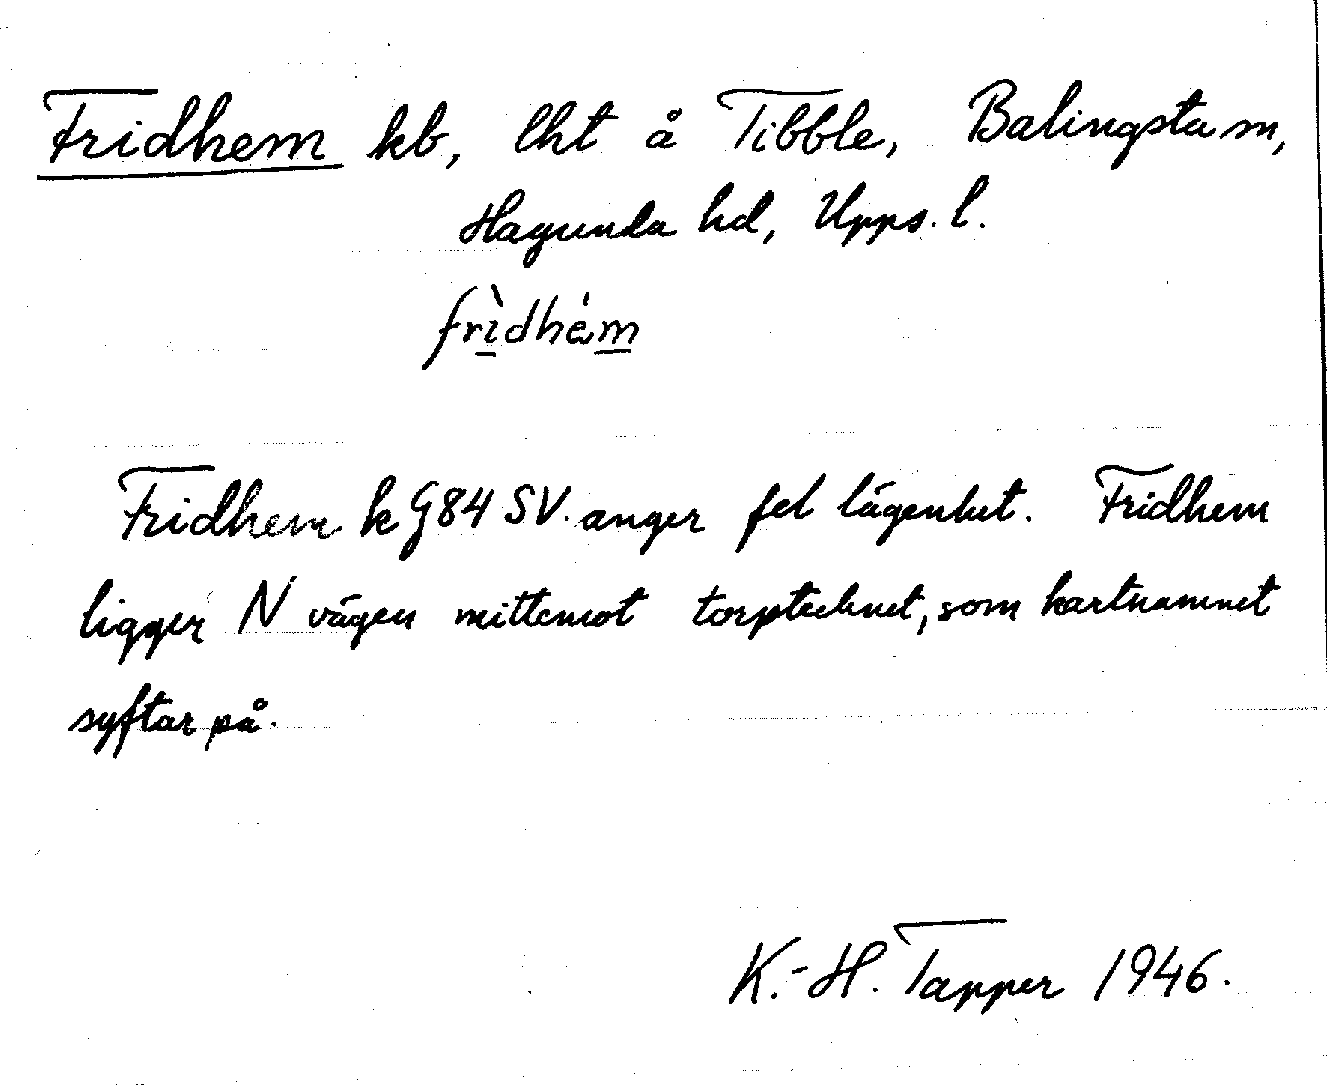 Fridhem kb, lht å Tibble, Balingsta sn,
Hagunda hd, Upps. l.
frìdhém
Fridhem k G84 SV. anger fel lägenhet. Fridhem
ligger N vägen mittemot torptecknet, som kartnamnet
syftar på.
K.-H. Tapper 1946.